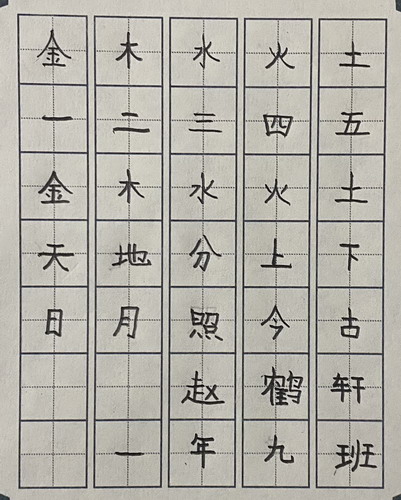 金木水火土
一二三四五
金木水火土
天地分上下
日月照今古
赵鹤轩
一年九班